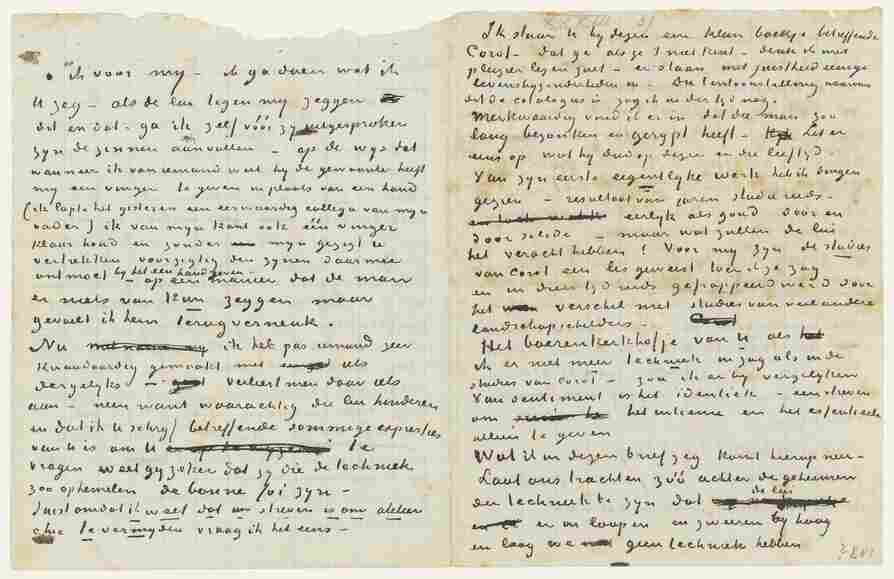 ik voor my – ik ga doen wat ik
U zeg – als de lui tegen my zeggen
dit en dat – ga ik zelf vóór zy uitgesproken
zyn de zinnen aanvullen – op de wys dat
wanneer ik van iemand weet hy de gewoonte heeft
my een vinger te geven in plaats van een hand
(ik lapte het gisteren een eerwaardig collega van myn
vader) ik van myn kant ook één vinger
klaar houd en zonder myn gezigt te
vertrekken voorzigtig den zynen daarmee
ontmoet by het een hand geven –
– op een manier dat de man
er niets van kan zeggen maar
gevoelt ik hem terug verneuk.
Nu ik heb pas iemand zeer
kwaadaardig gemaakt met als
dergelyks – verliest men daar iets
aan – neen want waarachtig die lui hinderen
en dat ik U schryf betreffende sommige expressies
van U is om U te
vragen weet gy zeker dat zy die de techniek
zoo ophemelen de bonne foi zyn –
Juist omdat ik weet dat Uw streven is om atelier
chic te vermyden vraag ik het eens –
Ik stuur U by dezen een klein boekje betreffende
Corot – dat ge als ge 't niet kent – denk ik met
plezier lezen zult – er staan met juistheid eenige
levensbyzonderheden in – De tentoonstelling waarvan
dit de catalogus is zag ik in der tyd nog.
Merkwaardig vond ik er in dat die man zoo
lang bezonken en gerypt heeft – Let er
eens op wat hy deed op dezen en dien leeftyd.
Van zyn eerste eigentlyke werk heb ik dingen
gezien – resultaat van jaren studie reeds –
eerlyk als goud door en
door solide – maar wat zullen de lui
het veracht hebben! Voor my zyn de studies
van Corot een les geweest toen ik ze zag
en in dien tyd reeds gefrappeerd werd door
het verschil met studies van veel andere
landschapschilders –
Het boerenkerkhofje van U als
ik er niet meer techniek in zag als in de
studies van Corot – zou ik er by vergelyken
Van sentiment is het identiek – een streven
om het intieme en het essentieele
alleen te geven
Wat U in dezen brief zeg komt hierop neer –
Laat ons trachten zóó achter de geheimen
der techniek te zyn dat de lui
er in loopen en zweeren by hoog
en laag we geen techniek hebben